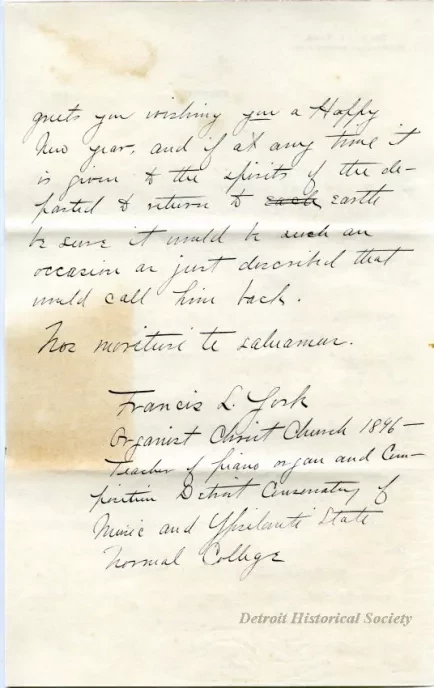 greets you wishing you a Happy
New year, and if at any time it
is given to the spirits of the de-
parted to return to each earth
be sure it would be such an
occasion as just described that
would call him back.
Nos morituri te salutamus.
Francis L. York
Organist Christ Church 1896—
Teacher of piano organ and Com-
position Detroit Conservatory of
Music and Ypsilanti State
Normal College
Detroit Historical Society